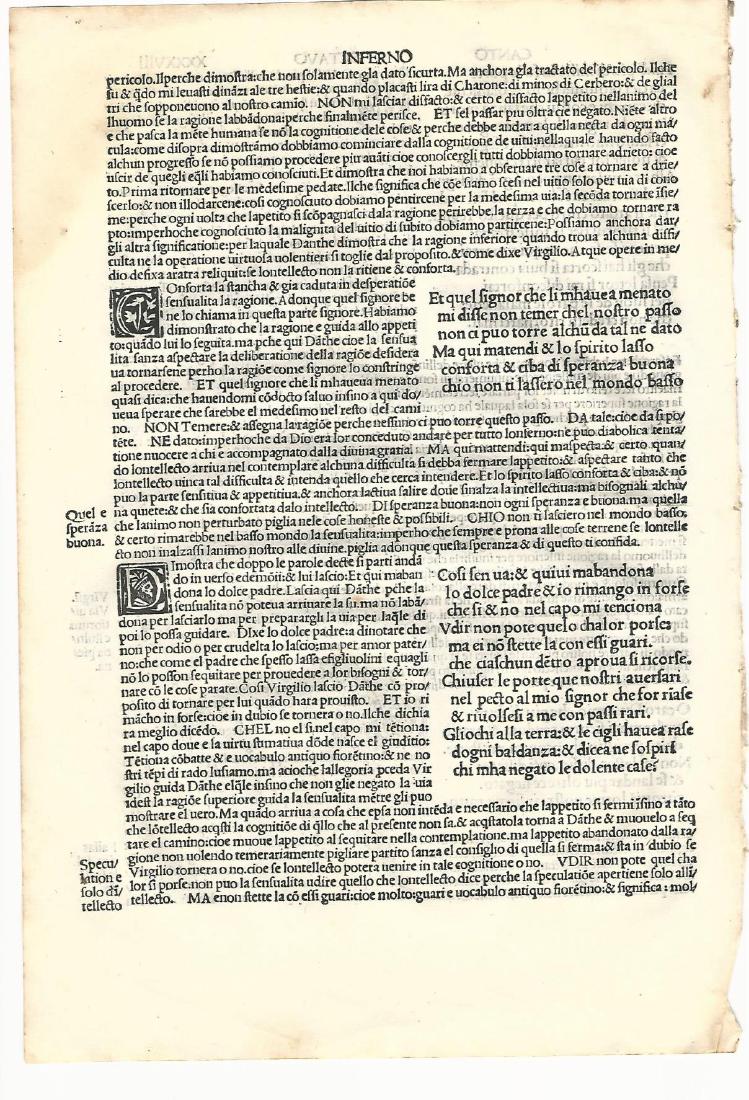 INFERNO
pericolo.Ilperche dimostra:che non solamente gla dato sicurta.Ma anchora gla tractato del pericolo. Ilche
fu & q̃do mi leuasti dinãzi ale tre bestie:& quando placasti lira di Charone:di minos di Cerbero:& de glial
tri che sopponeuono al nostro camio. NON mi lasciar disfacto:& certo e disfacto lappetito nellanimo del
lhuomo se la ragione labbãdona:perche finalmẽte perisce. ET sel passar piu oltra cie negato.Niẽte altro
e che pasca la mẽte humana se nõ la cognitione dele cose:& perche debbe andar a quella necta da ogni ma/
cula:come disopra dimostrãmo dobbiamo cominciare dalla cognitione de uitii:nellaquale hauendo facto
alchun progresso se nõ possiamo procedere piu auãti cioe conoscergli tutti dobbiamo tornare adrieto: cioe
uscir de quegli eq̃li habiamo conosciuti.Et dimostra che noi habiamo a obseruare tre cose a tornare a drie/
to.Prima ritornare per le medesime pedate.Ilche significa che cõe siamo scesi nel uitio solo per uia di cono
scerlo:& non illodarcene:cosi cognosciuto dobiamo pentircene per la medesima uia:la secõda tornare isie/
me:perche ogni uolta che lapetito si scõpagnasci dala ragione perirebbe.la terza e che dobiamo tornare ra
pto:imperhoche cognosciuto la malignita del uitio di subito dobiamo partircene:Possiamo anchora dar/
gli altra significatione:per laquale Danthe dimostra che la ragione inferiore quando troua alchuna diffi/
culta ne la operatione uirtuosa uolentieri si toglie dal proposito.& come dixe Virgilio.Atque opere in me/
dio defixa aratra reliquit:se lontellecto non la ritiene & conforta.
COnforta la stancha & gia caduta in desperatiõe
sensualita la ragione.Adonque quel signore be
ne lo chiama in questa parte signore.Habiamo
dimonstrato che la ragione e guida allo appeti
to:quãdo lui lo seguita.ma pche qui Dãthe cioe la sensua
lita sanza aspectare la deliberatione della ragiõe desidera
ua tornarsene perho la ragiõe come signore lo constringe
al procedere. ET quel signore che li mhaueua menato
quasi dica:che hauendomi cõdocto saluo insino a qui do/
ueua sperare che sarebbe el medesimo nel resto del cami
Et quel signor che li mhauea menato
mi disse non temer chel nostro passo
non ci puo torre alchũ da tal ne dato
Ma qui matendi & lo spirito lasso
conforta & ciba di speranza buona
chio non ti lassero nel mondo basso
no. NON Temere:& assegna laragiõe perche nessuno ci puo torre questo passo. DA tale:cioe da si po/
tẽte. NE dato:imperhoche da Dio era lor conceduto andare per tutto lonferno:ne puo diabolica tenta/
tione nuocere a chi e accompagnato dalla diuina gratia. MA qui mattendi:qui maspecta:& certo quan/
do lontellecto arriua nel contemplare alchuna difficulta si debba fermare lappetito:& aspectare tanto che
lontellecto uinca tal difficulta & intenda quello che cerca intendere.Et lo spirito lasso conforta & ciba:& nõ
puo la parte sensitiua & appetitiua.& anchora lactiua salire doue sinalza la intellectiua:ma bisognali alchu/
na quiete:& che sia confortata dalo intellecto. DI speranza buona:non ogni speranza e buona.ma quella
che lanimo non perturbato piglia nele cose honeste & possibili. CHIO non ti lasciero nel mondo basso:
& certo rimarebbe nel basso mondo la sensualita:imperho che sempre e prona alle cose terrene se lontelle
cto non inalzassi lanimo nostro alle diuine.piglia adonque questa speranza & di questo ti confida.
Quel e
sperãza
buona.
DImostra che doppo le parole decte si parti andã
do in uerso edemõii:& lui lascio:Et qui maban
dona lo dolce padre.Lascia qui Dãthe pche la
sensualita nõ poteua arriuare la su.ma nõ labã/
dona per lasciarlo ma per preparargli la uia:per laq̃le di
poi lo possa guidare. DIxe lo dolce padre:a dinotare che
non per odio o per crudelta lo lascio:ma per amor pater/
no:che come el padre che spesso lassa efigliuolini equagli
nõ lo posson sequitare per prouedere a lor bisogni & tor/
nare cõ le cose parate.Cosi Virgilio lascio Dãthe cõ pro/
posito di tornare per lui quãdo hara prouisto. ET io ri
mãcho in forse:cioe in dubio se tornera o no.Ilche dichia
ra meglio dicẽdo. CHEL no el si.nel capo mi tẽtiona:
nel capo doue e la uirtu stimatiua dõde nasce el giuditio:
Tẽtiona cõbatte & e uocabulo antiquo fiorẽtino:& ne no
stri tẽpi di rado lusiamo.ma acioche lallegoria pceda Vir
gilio guida Dãthe elq̃le insino che non glie negato la uia
idest la ragiõe superiore guida la sensualita mẽtre gli puo
Cosi sen ua:& quiui mabandona
lo dolce padre & io rimango in forse
che si & no nel capo mi tenciona
Vdir non pote quelo chalor porse:
ma ei nõ stette la con essi guari.
che ciaschun dẽtro aproua si ricorse.
Chiuser le porte que nostri auersari
nel pecto al mio signor che for riase
& riuolsesi a me con passi rari.
Gliochi alla terra:& le cigli hauea rase
dogni baldanza:& dicea ne sospiri
chi mha negato le dolente case?
mostrare el uero.Ma quãdo arriua a cosa che epsa non intẽda e necessario che lappetito si fermi ĩsino a tãto
che lõtellecto acq̃sti la cognitiõe di q̃llo che al presente non sa.& acq̃statola torna a Dãthe & muouelo a seq
tare el camino:cioe muoue lappetito al sequitare nella contemplatione.ma lappetito abandonato dalla ra/
gione non uolendo temerariamente pigliare partito sanza el consiglio di quella si ferma:& sta in dubio se
Virgilio tornera o no.cioe se lontellecto potera uenire in tale cognitione o no. VDIR non pote quel cha
lor si porse:non puo la sensualita udire quello che lontellecto dice perche la speculatiõe apertiene solo alli/
tellecto. MA enon stette la cõ essi guari:cioe molto:guari e uocabulo antiquo fiorẽtino:& significa : mol/
Specu/
latione
solo dĩ/
tellecto